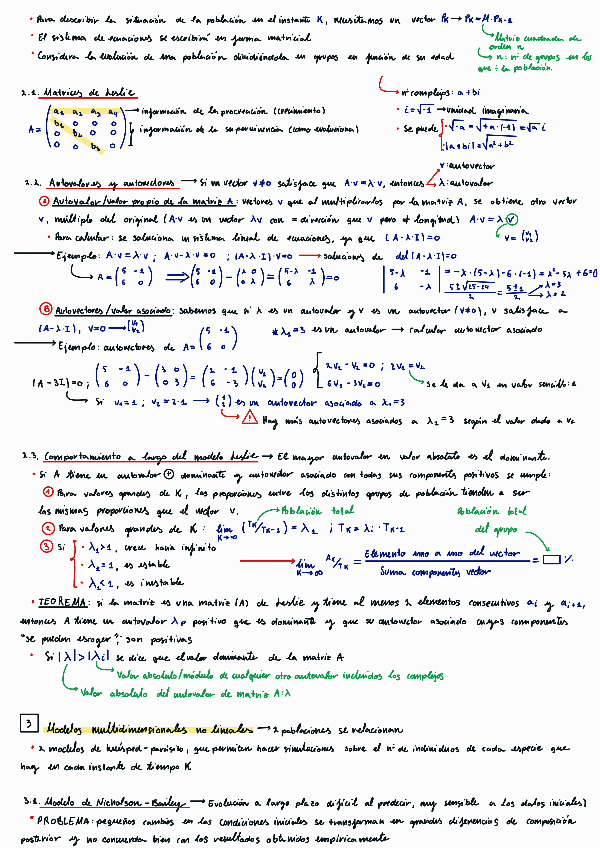 • Para describir la situación de la población en el instante K, necesitamos un vector Pk → Pk = M · Pk-1
• El sistema de ecuaciones se escribirá en forma matricial
Matriz cuadrada de orden n
• Considera la evolución de una población dividiéndola en grupos en función de su edad
n: nº de grupos en los que ÷ la población.
2.1. Matrices de Leslie
A = (a1 a2 a3 a4
b1 0 0 0
0 b2 0 0
0 0 b3 0)
→ información de la procreación (crecimiento)
información de la supervivencia (cómo evoluciona)
• nº complejos: a + bi
• i = √-1 → unidad imaginaria
• Se puede
• √-a = √+a·(-1) = √a i
• |a + bi| = √a² + b²
2.2. Autovalores y autovectores → Si un vector v≠0 satisface que A·v = λ·v, entonces
v: autovector
λ: autovalor
① Autovalor/valor propio de la matriz A: vectores v que al multiplicarlos por la matriz A, se obtiene otro vector
v, múltiplo del original (A·v es un vector λv con = dirección que v pero ≠ longitud) A·v = λ v
• Para calcular: se soluciona un sistema lineal de ecuaciones, ya que (A-λ·I)=0
v = (v1 v2)
Ejemplo: A·v = λ·v ; A·v-λ·v = 0 ; (A-λ·I)·v = 0 → soluciones de det(A-λ·I)=0
A = (5 -1
6 0) ⟹ (5 -1
6 0) - (λ 0
0 λ) = (5-λ -1
6 -λ) = 0
|5-λ -1
6 -λ| = -λ·(5-λ) - 6·(-1) = λ² - 5λ + 6 = 0
5±√25-24 / 2 = 5±1 / 2 λ=3 λ=2
② Autovectores/valor asociado: sabemos que si λ es un autovalor y v es un autovector (v≠0), v satisface a
(A-λ·I), v=0 → (v1 v2)
* λ1 = 3 es un autovalor → calcular autovector asociado
Ejemplo: autovectores de A = (5 -1
6 0)
(A-3I)=0 ; (5 -1
6 0) - (3 0
0 3) = (2 -1
6 -3) (v1
v2) = (0
0)
2v1 - v2 = 0 ; 2v1 = v2
6v1 - 3v2 = 0
Se le da a v1 un valor sencillo: 1
Si v1 = 1 ; v2 = 2·1 → (1 2) es un autovector asociado a λ1 = 3
Hay más autovectores asociados a λ1 = 3 según el valor dado a v1
2.3. Comportamiento a largo del modelo Leslie → El mayor autovalor en valor absoluto es el dominante.
• Si A tiene un autovalor ⊕ dominante y autovector asociado con todas sus componentes positivas se cumple:
① Para valores grandes de K, las proporciones entre los distintos grupos de población tienden a ser
las mismas proporciones que el vector v.
Población total
② Para valores grandes de K: lim K→∞ (Tk/Tk-1) = λ1 ; Tk = λ1 · Tk-1
Población total del grupo
③ Si
• λ1>1, crece hacia infinito
• λ1=1, es estable
• λ1<1, es inestable
lim K→∞ Ak/Tk = Elemento uno a uno del vector / Suma componentes vector = □ %
• TEOREMA: si la matriz es una matriz (A) de Leslie y tiene al menos 2 elementos consecutivos ai y ai+1,
entonces A tiene un autovalor λp positivo que es dominante y que su autovector asociado cuyas componentes
"se pueden escoger", son positivas
• Si |λ| > |λi| se dice que el valor dominante de la matriz A
Valor absoluto/módulo de cualquier otro autovalor incluidos los complejos
Valor absoluto del autovalor de matriz A:λ
3 Modelos multidimensionales no lineales → 2 poblaciones se relacionan
• 2 modelos de huésped-parásito, que permiten hacer simulaciones sobre el nº de individuos de cada especie que
hay en cada instante de tiempo K
3.1. Modelo de Nicholson-Bailey → Evolución a largo plazo difícil al predecir, muy sensible a los datos iniciales)
• PROBLEMA: pequeños cambios en las condiciones iniciales se transforman en grandes diferencias de composición
posterior y no concuerda bien con los resultados obtenidos empíricamente